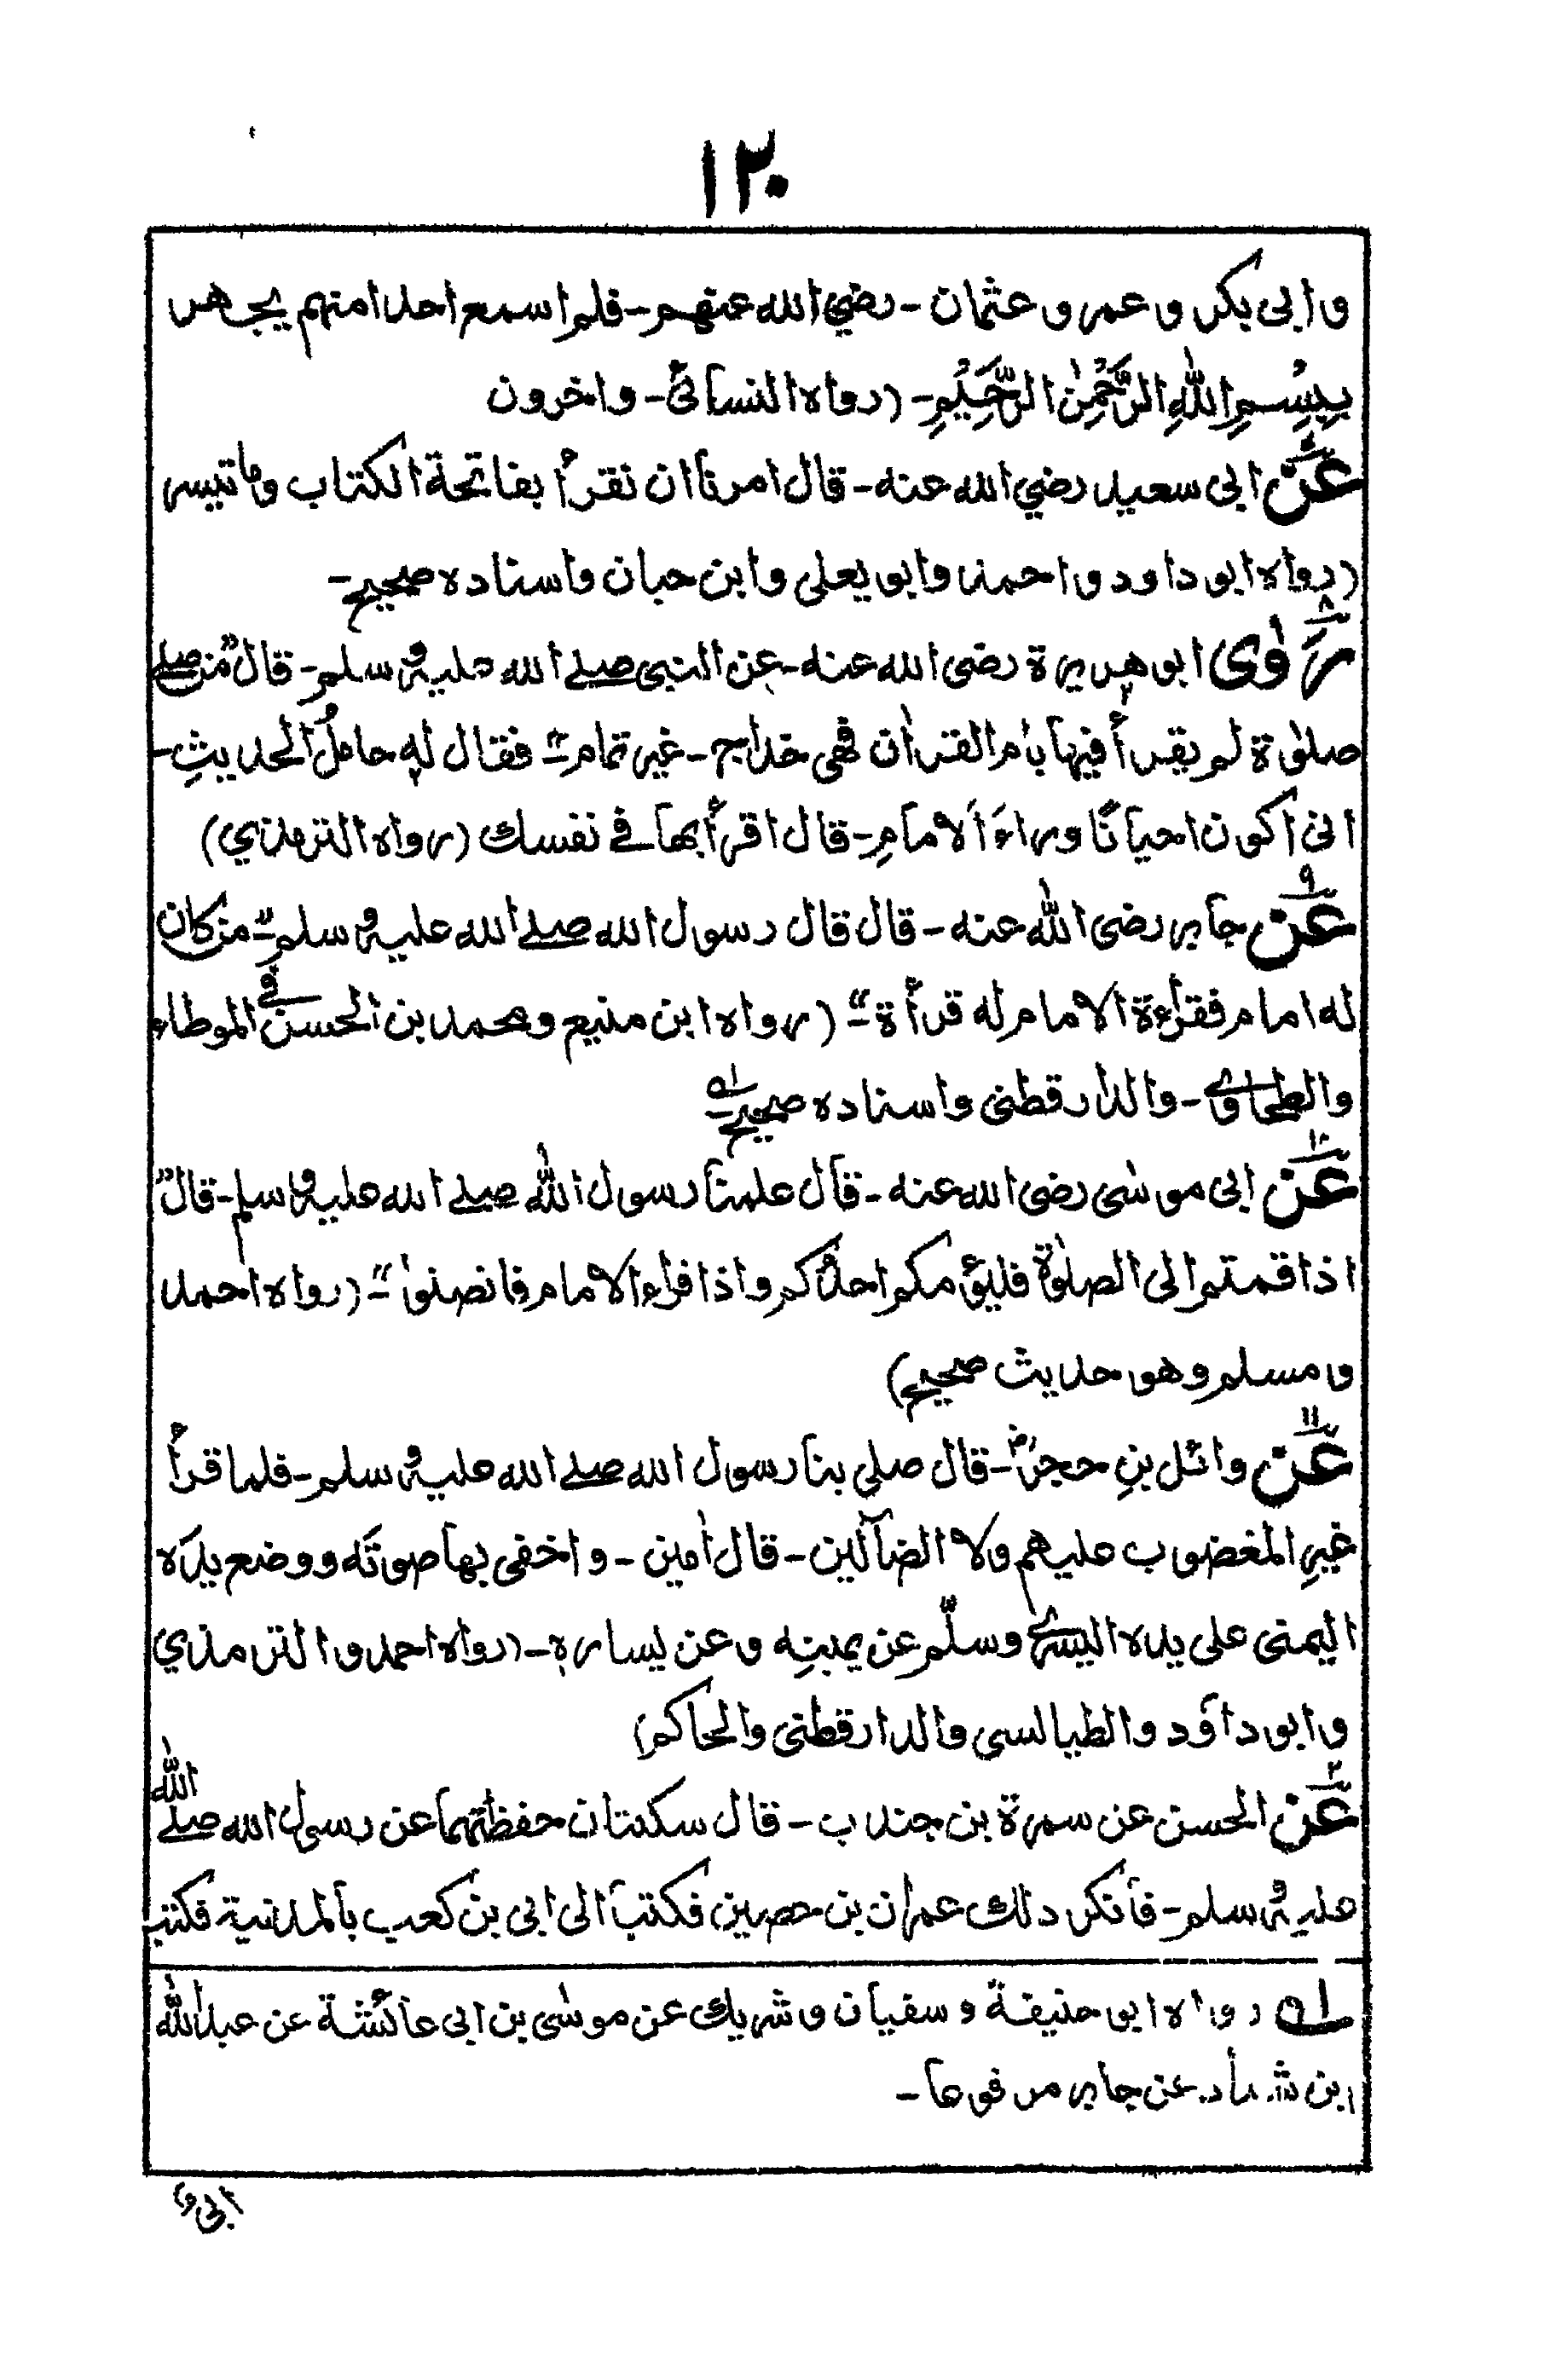 ١٢٠
وابی بکر وعمر وعثمان - رضي الله عنهم - فلم اسمع احدا منهم یجهر
بِبِسْمِ اللّٰهِ الرَّحْمٰنِ الرَّحِیْمِ - (رواه النسائی - واخرون
عن ابی سعید رضي الله عنه - قال امرنا ان نقرأ بفاتحة الکتاب وما تیسر
(رواه ابو داود واحمد وابو یعلی وابن حبان واسناده صحیح -
٨
رَوٰی ابو هریرة رضی الله عنه - عن النبی صلے الله علیه وسلم - قال "من صلے
صلوٰة لم یقرأ فیها بام القرأن فهی خداج - غیر تمام" - فقال له حاملُ الحدیثِ -
انی اکون احیانًا وراءَ الامامِ - قال اقرأ بها فے نفسك (رواه الترمذي)
٩
عن جابر رضی اللّٰه عنه - قال قال رسول الله صلے الله علیه وسلم - "من کان
له امام فقرأة الامام له قرأة" - (رواه ابن منیع ومحمد بن الحسن فی الموطاء
والطحاوے - والدارقطنی واسناده صحیح - ١ه
١٠
عن ابی موسٰی رضی الله عنه - قال علمنا رسول اللّٰه صلے الله علیه وسلم - قال "
اذا قمتم الی الصلوٰة فلیؤمکم احدکم واذا قرأ الامام فانصتوا" - (رواه احمد
ومسلم وهو حدیث صحیح)
١١
عن وائل بنِ حجرؓ - قال صلی بنا رسول الله صلے الله علیه وسلم - فلما قرأ
غیرِ المغضوب علیهم ولا الضآلین - قال اٰمین - واخفی بها صوتَه ووضع یدَه
الیمنی علی یده الیسرے وسلّم عن یمینِه وعن یسارِه - (رواه احمد والترمذي
وابو داؤد والطیالسی والدارقطنی والحاکم)
٢
عن الحسن عن سمرة بن جندب - قال سکتتان حفظتهما عن رسول الله صلے اللّٰه
علیه وسلم - فانکر ذلك عمران بن حصین فکتبا الی ابی بن کعب بالمدنیة فکتب
١ه رواه ابو حنیفة وسفیان وشریك عن موسٰی بن ابی عائشة عن عبد اللّٰه
ابن شداد عن جابر مرفوعا -
ابی و